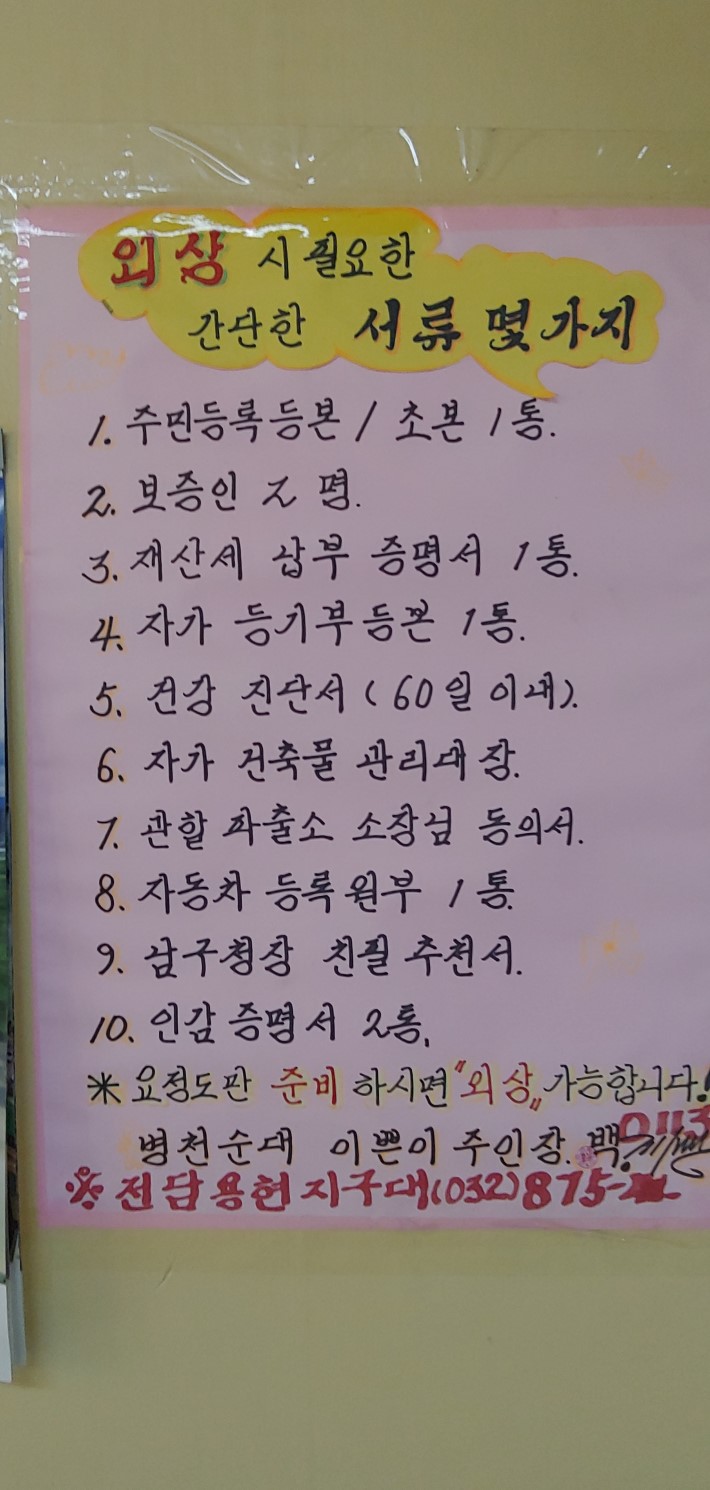 외상 시 필요한
간단한 서류 몇가지
1. 주민등록등본 / 초본 1통.
2. 보증인 2 명.
3. 재산세 납부 증명서 1통.
4. 자가 등기부등본 1통.
5. 건강 진단서 (60일 이내).
6. 자가 건축물 관리대장.
7. 관할 파출소 소장님 동의서.
8. 자동차 등록원부 1통
9. 남구청장 친필 추천서.
10. 인감증명서 2통,
※ 요정도만 준비 하시면 "외상" 가능합니다!
병천순대 이쁜이 주인장. 백.
0113
※ 전담용현지구대 (032) 875-